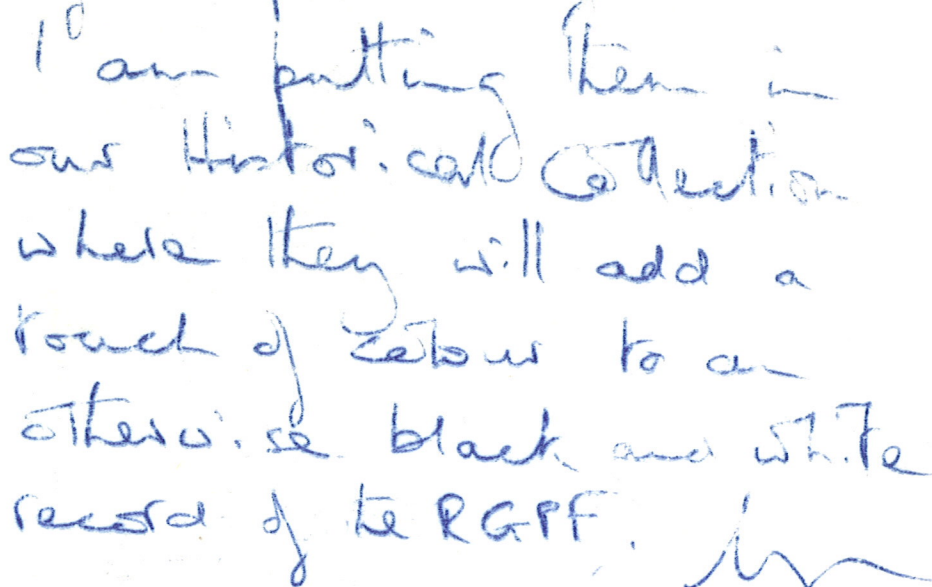 I am putting them in
our Historical Collection
where they will add a
touch of colour to an
otherwise black and white
record of the RGPF.